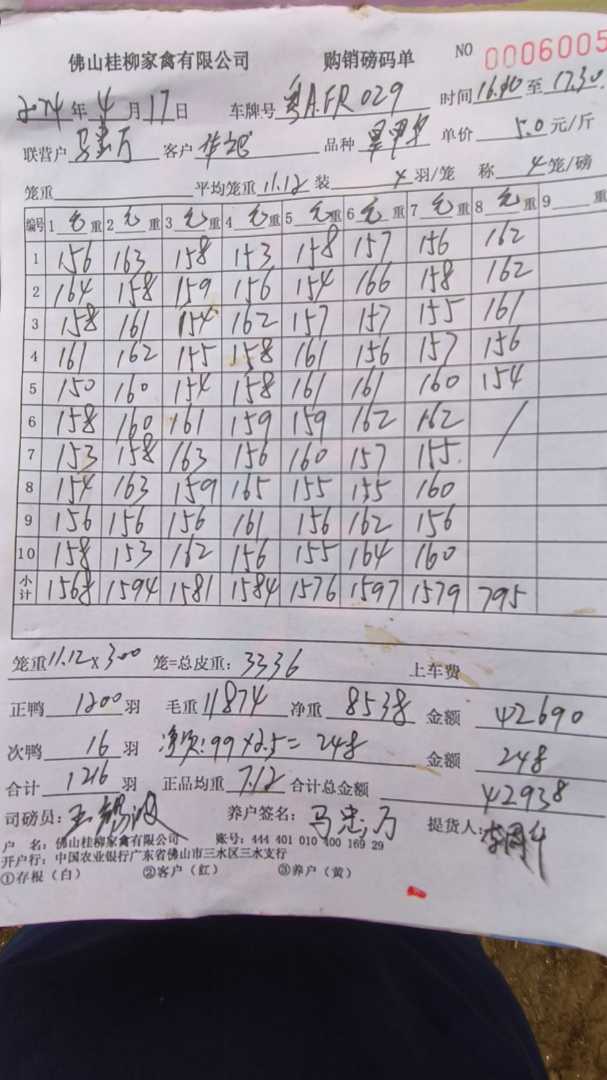 佛山桂柳家禽有限公司 购销磅码单 NO 0006005
2024年4月17日 车牌号 粤A.FR029 时间16.40至17.30
联营户 马忠万 客户 华旭 品种 单价 5.0元/斤
笼重 平均笼重11.12装 4羽/笼 称 4笼/磅
编号 1毛重 2毛重 3毛重 4毛重 5毛重 6毛重 7毛重 8毛重 9重
1 156 163 158 153 158 157 156 162
2 164 158 159 156 154 166 158 162
3 158 161 154 162 157 157 155 161
4 161 162 155 158 161 156 157 156
5 150 160 154 158 161 161 160 154
6 158 160 161 159 159 162 162 /
7 153 158 163 156 160 157 155
8 154 163 159 165 155 155 160
9 156 156 156 161 156 162 156
10 158 153 162 156 155 164 160
小计 1568 1594 1581 1584 1576 1597 1579 795
笼重11.12×300 笼=总皮重：3336 上车费
正鸭1200羽 毛重11874 净重8538 金额42690
次鸭16羽 净次:99×2.5=248 金额248
合计1216羽 正品均重7.12 合计总金额42938
司磅员： 养户签名：马忠万 提货人：
户 名：佛山桂柳家禽有限公司 账号：444 401 010 400 169 29
开户行：中国农业银行广东省佛山市三水区三水支行
①存根（白） ②客户（红） ③养户（黄）